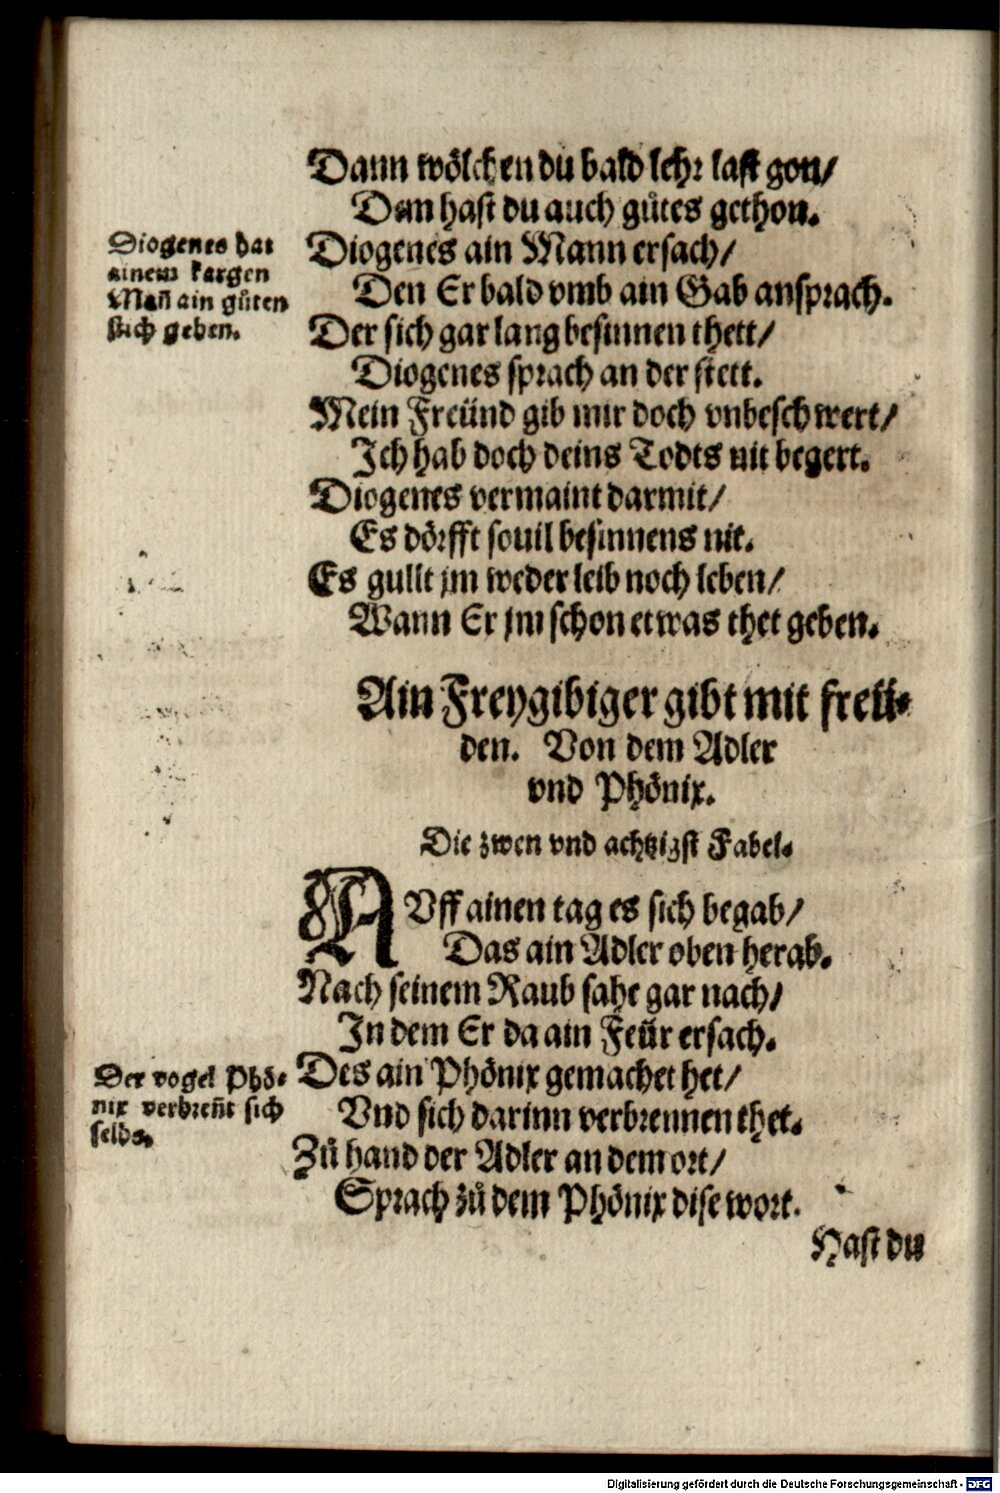 Dann wölchen du bald lehr last gon/
Dem hast du auch gůtes gethon.
Diogenes hat
ainem kargen
Mañ ain gůten
stich geben.
Diogenes ain Mann ersach/
Den Er bald vmb ain Gab ansprach.
Der sich gar lang besinnen thett/
Diogenes sprach an der stett.
Mein Freünd gib mir doch vnbeschwert/
Ich hab doch deins Todts nit begert.
Diogenes vermaint darmit/
Es dörfft souil besinnens nit.
Es gullt jm weder leib noch leben/
Wann Er jm schon etwas thet geben.
Ain Freygibiger gibt mit freü⸗
den. Von dem Adler
vnd Phönix.
Die zwen vnd achtzigst Fabel.
AVff ainen tag es sich begab/
Das ain Adler oben herab.
Nach seinem Raub sahe gar nach/
In dem Er da ain Feür ersach.
Der vogel Phö⸗
nix verbreñt sich
selbs.
Des ain Phönix gemachet het/
Vnd sich darinn verbrennen thet.
Zů hand der Adler an dem ort/
Sprach zů dem Phönix dise wort.
Hast du
Digitalisierung gefördert durch die Deutsche Forschungsgemeinschaft - DFG